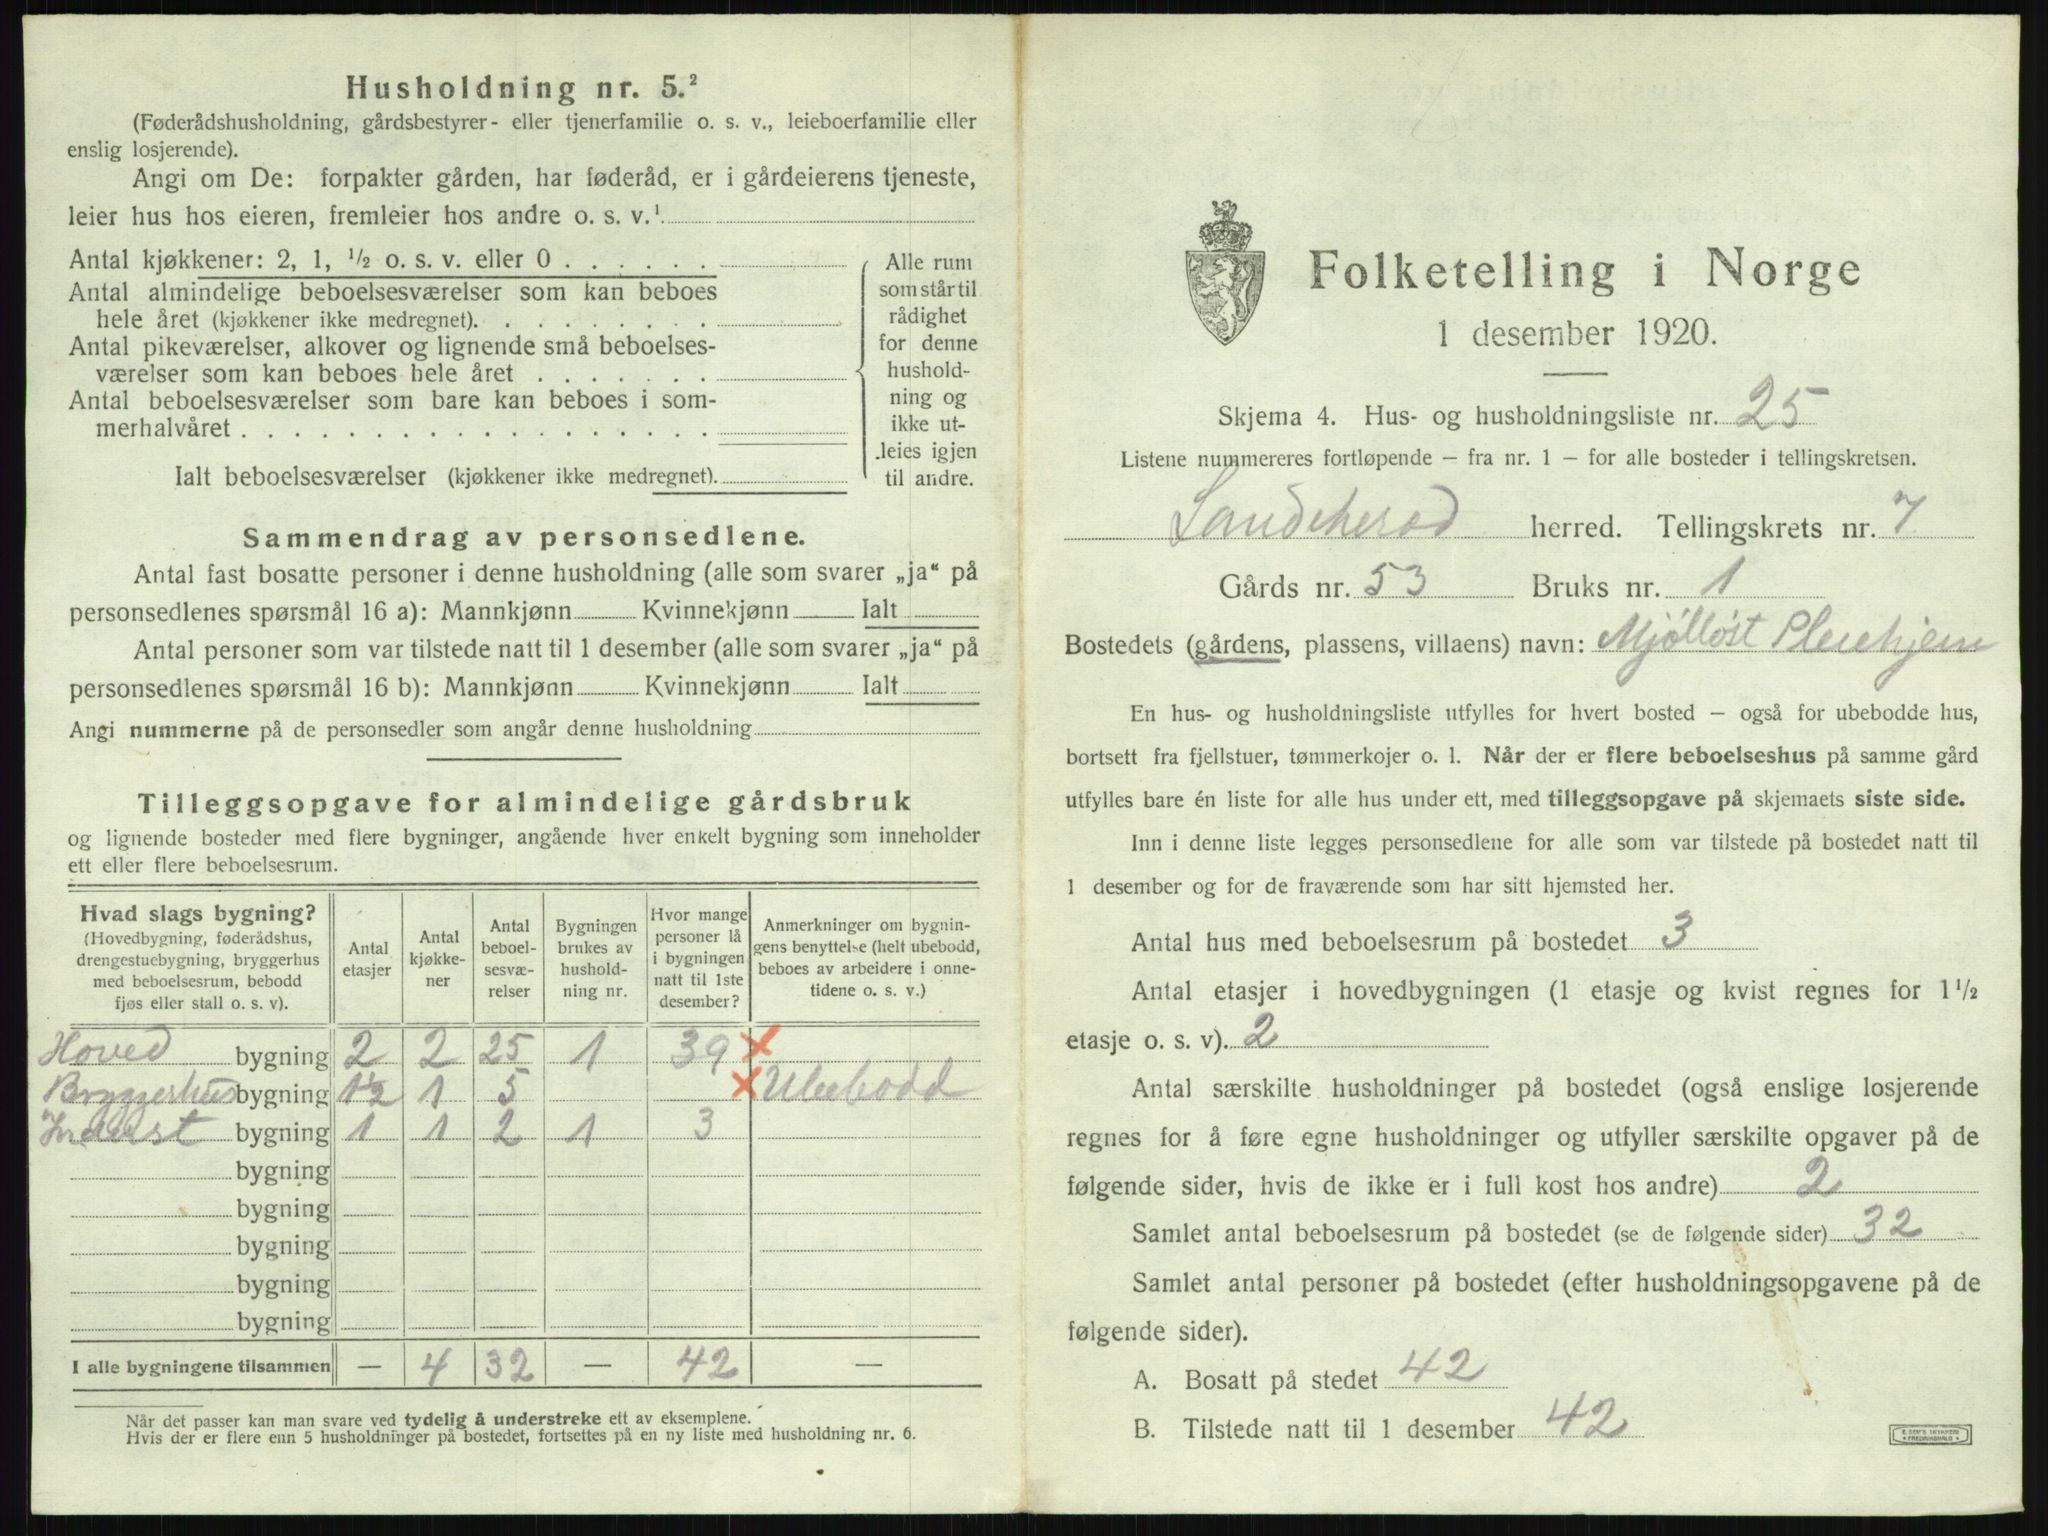 Husholdning nr. 5.²
(Føderådshusholdning, gårdsbestyrer- eller tjenerfamilie o. s. v., leieboerfamilie eller
enslig losjerende).
Angi om De: forpakter gården, har føderåd, er i gårdeierens tjeneste,
leier hus hos eieren, fremleier hos andre o. s. v.¹
Antal kjøkkener: 2, 1, ½ o. s. v. eller 0 . . . . . .
Antal almindelige beboelsesværelser som kan beboes
hele året (kjøkkener ikke medregnet). . . . . . . . .
Antal pikeværelser, alkover og lignende små beboelses-
værelser som kan beboes hele året . . . . . . .
Antal beboelsesværelser som bare kan beboes i som-
merhalvåret . . . . . . . . . . . . . . . . . .
Ialt beboelsesværelser (kjøkkener ikke medregnet).
Alle rum
som står til
rådighet
for denne
hushold-
ning og
ikke ut-
leies igjen
til andre.
Sammendrag av personsedlene.
Antal fast bosatte personer i denne husholdning (alle som svarer „ja“ på
personsedlenes spørsmål 16 a): Mannkjønn Kvinnekjønn Ialt
Antal personer som var tilstede natt til 1 desember (alle som svarer „ja“ på
personsedlenes spørsmål 16 b): Mannkjønn Kvinnekjønn Ialt
Angi nummerne på de personsedler som angår denne husholdning
Tilleggsopgave for almindelige gårdsbruk
og lignende bosteder med flere bygninger, angående hver enkelt bygning som inneholder
ett eller flere beboelsesrum.
Hvad slags bygning?
(Hovedbygning, føderådshus,
drengestuebygning, bryggerhus
med beboelsesrum, bebodd
fjøs eller stall o. s. v).
Antal
etasjer
Antal
kjøkke-
ner
Antal
beboel-
sesvæ-
relser
Bygningen
brukes av
hushold-
ning nr.
Hvor mange
personer lå
i bygningen
natt til 1ste
desember?
Anmerkninger om bygnin-
gens benyttelse (helt ubebodd,
beboes av arbeidere i onne-
tidene o. s. v.)
Hoved bygning 2 2 25 1 39 x
Bryggerhus bygning 1½ 1 5 x Ubebodd
bygning 1 1 2 1 3
bygning
bygning
bygning
bygning
bygning
I alle bygningene tilsammen — 4 32 — 42 —
Når det passer kan man svare ved tydelig å understreke ett av eksemplene.
Hvis der er flere enn 5 husholdninger på bostedet, fortsettes på en ny liste med husholdning nr. 6.
Folketelling i Norge
1 desember 1920.
Skjema 4. Hus- og husholdningsliste nr. 25
Listene nummereres fortløpende — fra nr. 1 — for alle bosteder i tellingskretsen.
Sandeherad herred. Tellingskrets nr. 7
Gårds nr. 53 Bruks nr. 1
Bostedets (gårdens, plassens, villaens) navn: Mjølløst Pleiehjem
En hus- og husholdningsliste utfylles for hvert bosted — også for ubebodde hus,
bortsett fra fjellstuer, tømmerkojer o. l. Når der er flere beboelseshus på samme gård
utfylles bare én liste for alle hus under ett, med tilleggsopgave på skjemaets siste side.
Inn i denne liste legges personsedlene for alle som var tilstede på bostedet natt til
1 desember og for de fraværende som har sitt hjemsted her.
Antal hus med beboelsesrum på bostedet 3
Antal etasjer i hovedbygningen (1 etasje og kvist regnes for 1½
etasje o. s. v). 2
Antal særskilte husholdninger på bostedet (også enslige losjerende
regnes for å føre egne husholdninger og utfyller særskilte opgaver på de
følgende sider, hvis de ikke er i full kost hos andre) 2
Samlet antal beboelsesrum på bostedet (se de følgende sider) 32
Samlet antal personer på bostedet (efter husholdningsopgavene på de
følgende sider).
A. Bosatt på stedet 42
B. Tilstede natt til 1 desember 42